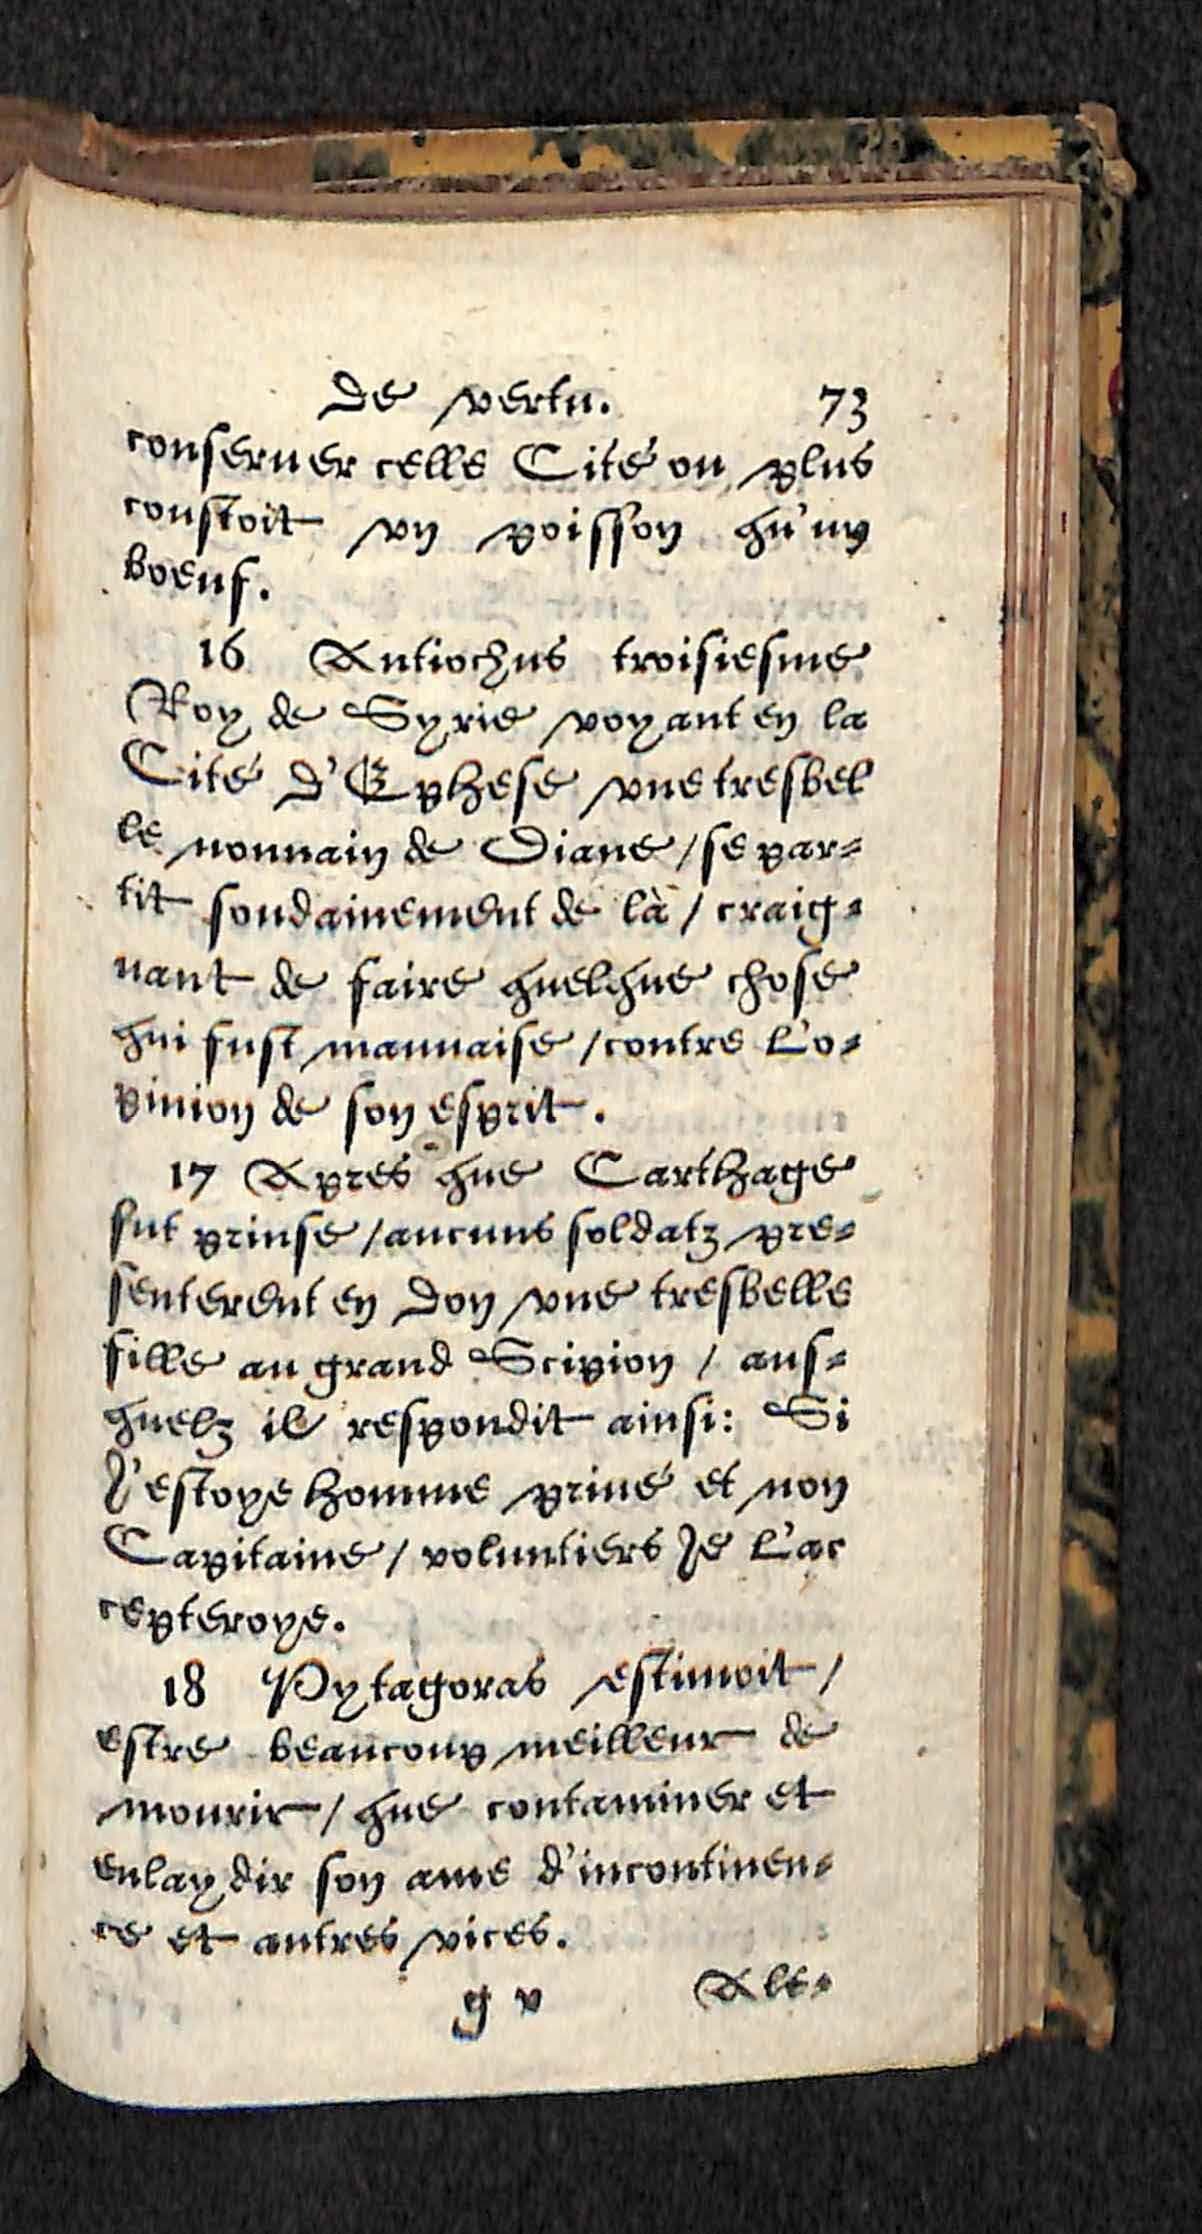 De vertu. 73
conseruer celle Cité ou plus
coustoit vn poisson qu'vn
boeuf.
16 Antiochus troisiesme
Roy de Syrie voyant en la
Cité d'Ephese vne tresbel
le nonnain de Diane / se par-
tit soudainement de là / craig-
nant de faire quelque chose
qui fust mauuaise / contre l'o-
pinion de son esprit.
17 Apres que Carthage
fut prinse / aucuns soldatz pre-
senterent en don vne tresbelle
fille au grand Scipion / aus-
quelz il respondit ainsi: Si
j'estoye homme priué et non
Capitaine / voluntiers je l'ac
cepteroye.
18 Pytagoras estimoit /
estre beaucoup meilleur de
mourir / que contaminer et
enlaydir son ame d'incontinen-
ce et autres vices.
g v Ale-